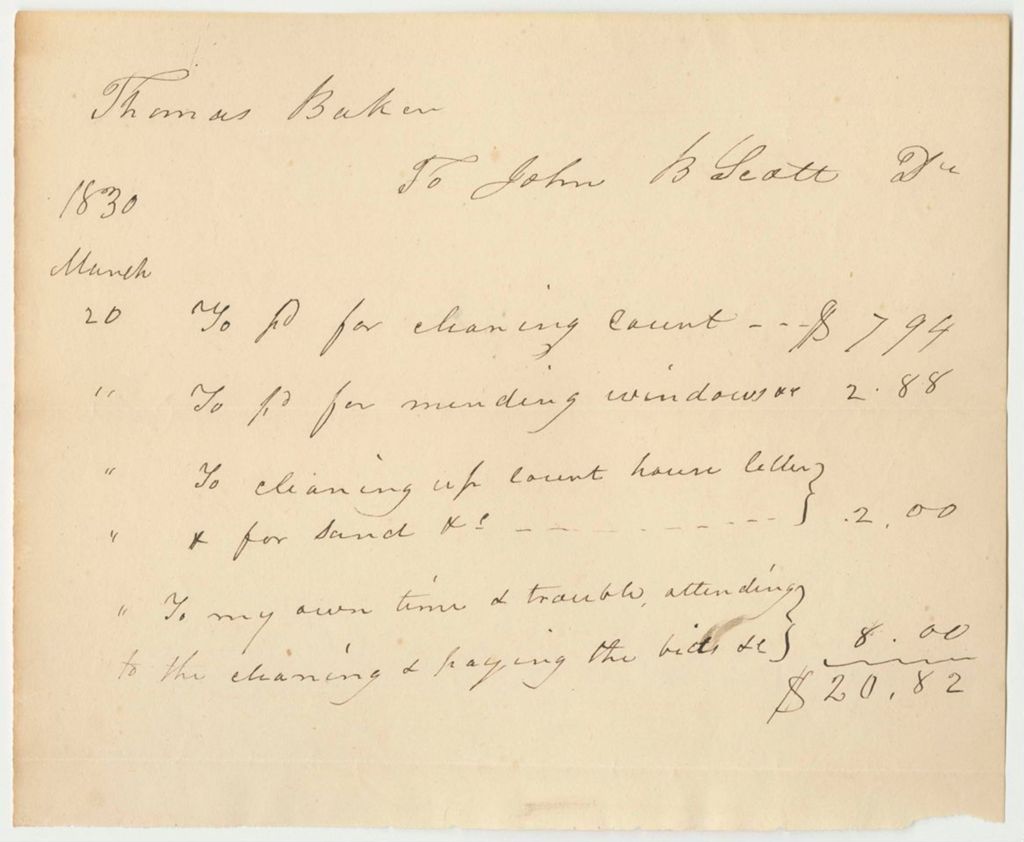 Thomas Baker
To John B Scott Dr
1830
March
20 To pd for cleaning Court - - - $ 7 94
" To pd for mending windows &c 2.88
" To cleaning up Court house
" & for Sand &c - - - - - - - - - - 2.00
" To my own time & trouble, attending
to the cleaning & paying the bills &c 8.00
$20.82